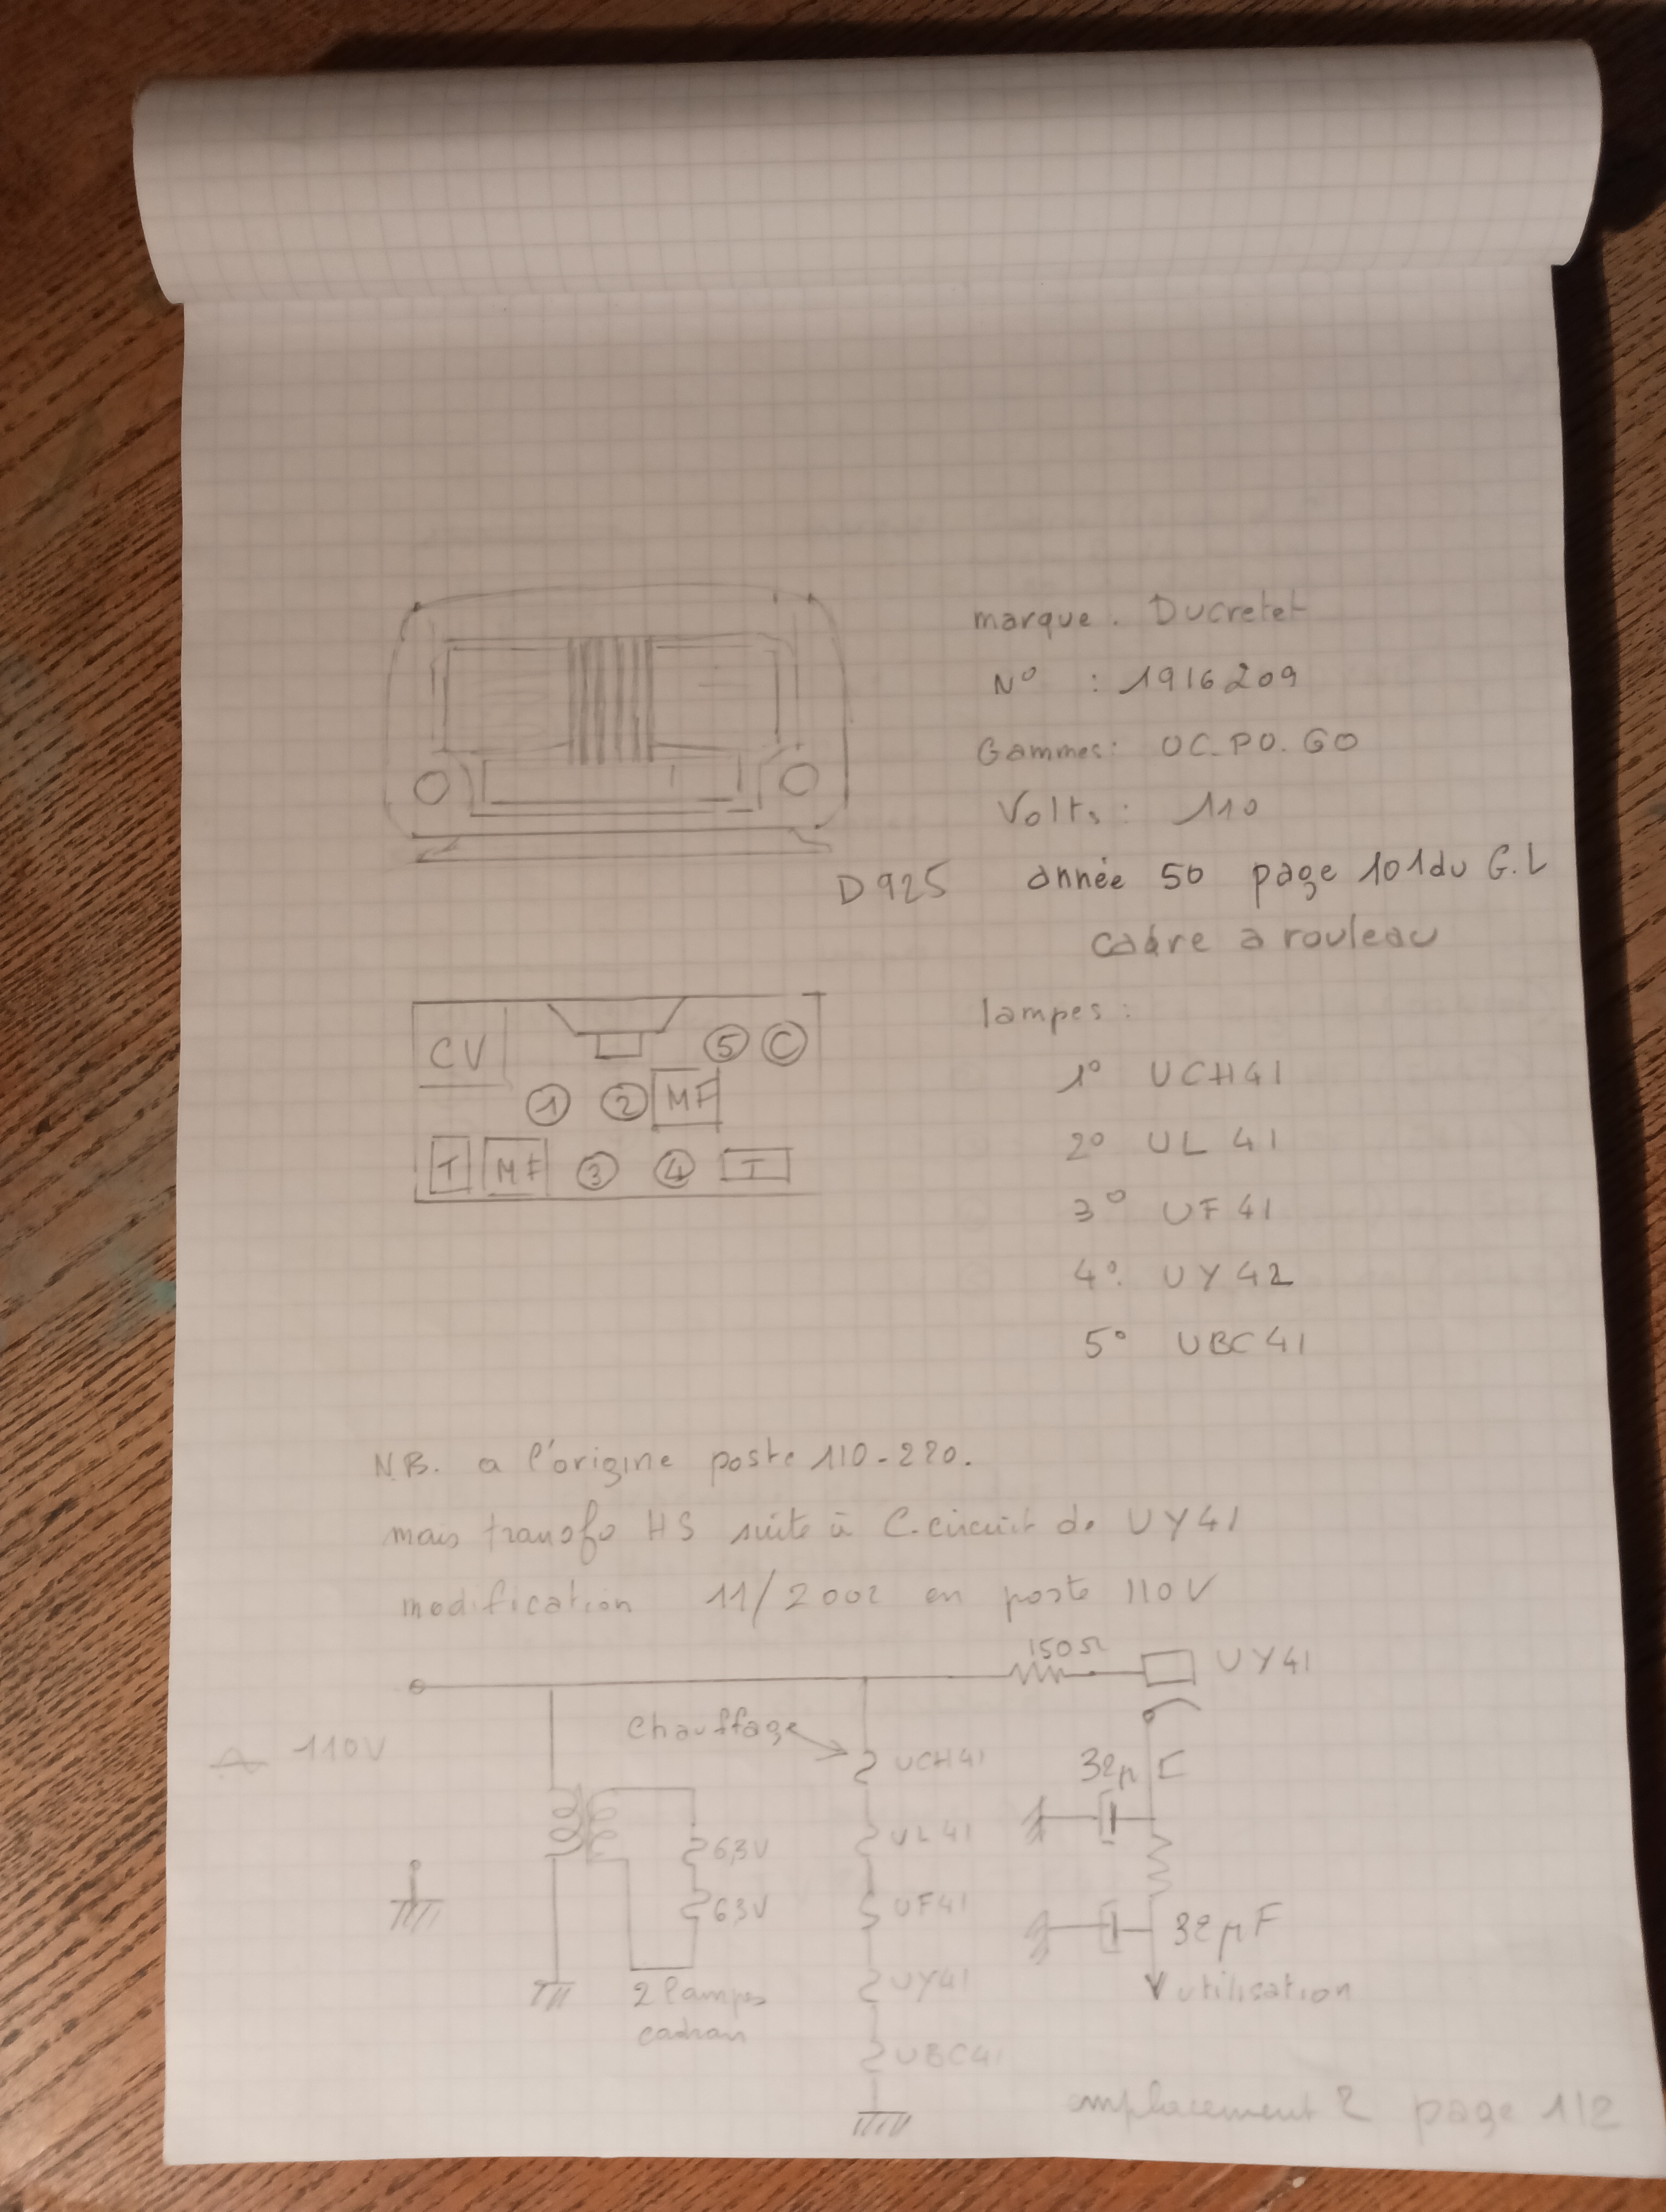 marque . Ducretet
N° : 1916209
Gammes: OC-PO. GO
Volts : 110
D925 année 50 page 101 du G.L
cadre a rouleau
CV
5 C
1 2 MF
T MF 3 4 T
lampes :
1° UCH41
2° UL 41
3° UF 41
4° UY 42
5° UBC 41
N.B. a l'origine poste 110-220.
mais transfo HS suite à C.circuit de UY41
modification 11/2002 en poste 110V
150Ω
UY41
110V
Chauffage
UCH41
32µ
UL41
6,3V
6,3V
UF41
32µF
UY41
2 lampes
cadran
utilisation
UBC41
emplacement 2 page 1/2